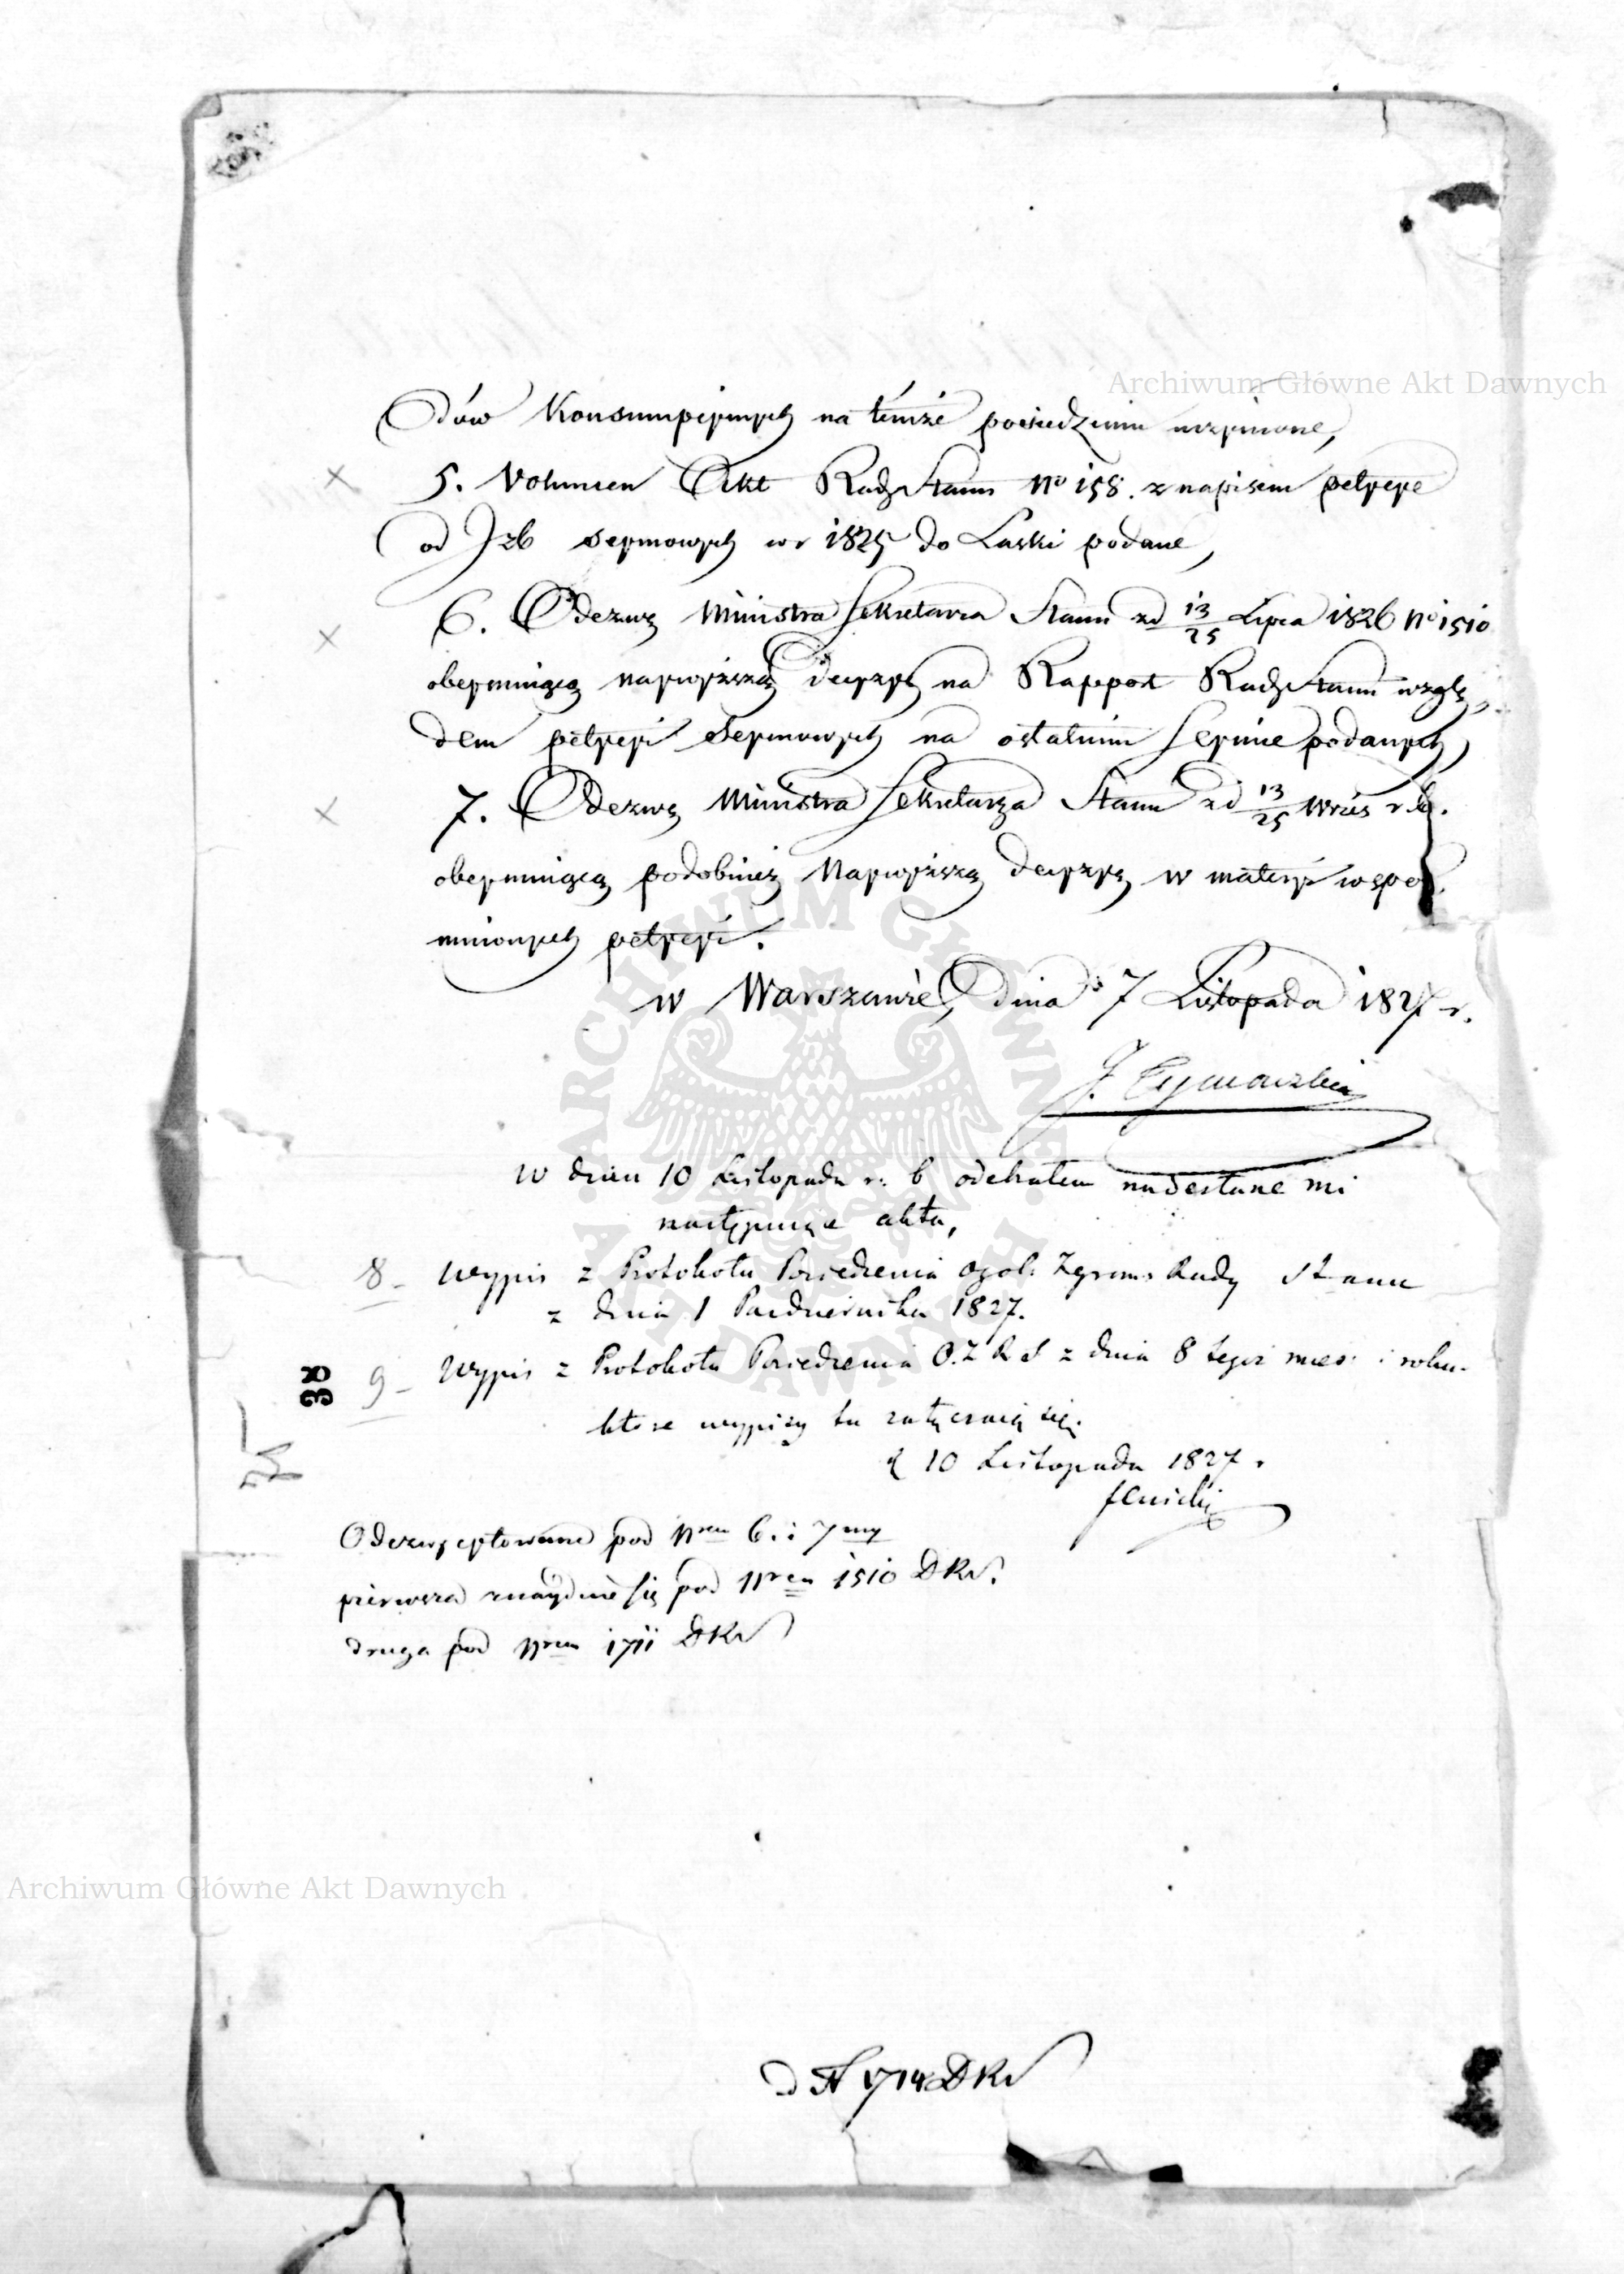 Archiwum Główne Akt Dawnych
dów Konsumpcyjnych na témże posiedzeniu uczynione,
5. Volumen Akt Rady Stanu No 158. z napisem petycye
od Izb Seymowych w r 1825 do Laski podane,
6. Odezwę Ministra Sekretarza Stanu z d 13/25 Lipca 1826 No 1510
obeymuiącą naywyższą decyzyę na Rapport Rady Stanu wzglę
dem petycyi Seymowych na ostatnim Seymie podanych,
7. Odezwę Ministra Sekretarza Stanu z d 13/25 Wrześ r. b.
obeymuiącą podobnież Naywyższą decyzyę w materyi wspo
mnionych petycyi.
w Warszawie, dnia 7 Listopada 1827 r.
J. Tymowski
W dniu 10 Listopada r. b odebrałem nadesłane mi
następuiące akta,
8 - Wypis z Protokołu Posiedzenia Ogól: Zgrom: Rady Stanu
z dnia 1 Pazdziernika 1827.
9 - Wypis z Protokołu Posiedzenia O. Z R S z dnia 8 tegoż mies: i roku.
które wypisy tu załączaią się.
d 10 Listopada 1827.
38
Odezwy cytowane pod Nrem 6. i 7my
pierwsza znayduie się pod Nrem 1510 DKS.
druga pod Nrem 1711 DKS
Archiwum Główne Akt Dawnych
d N 1714 DKS
ARCHIWUM GŁÓWNE AKT DAWNYCH